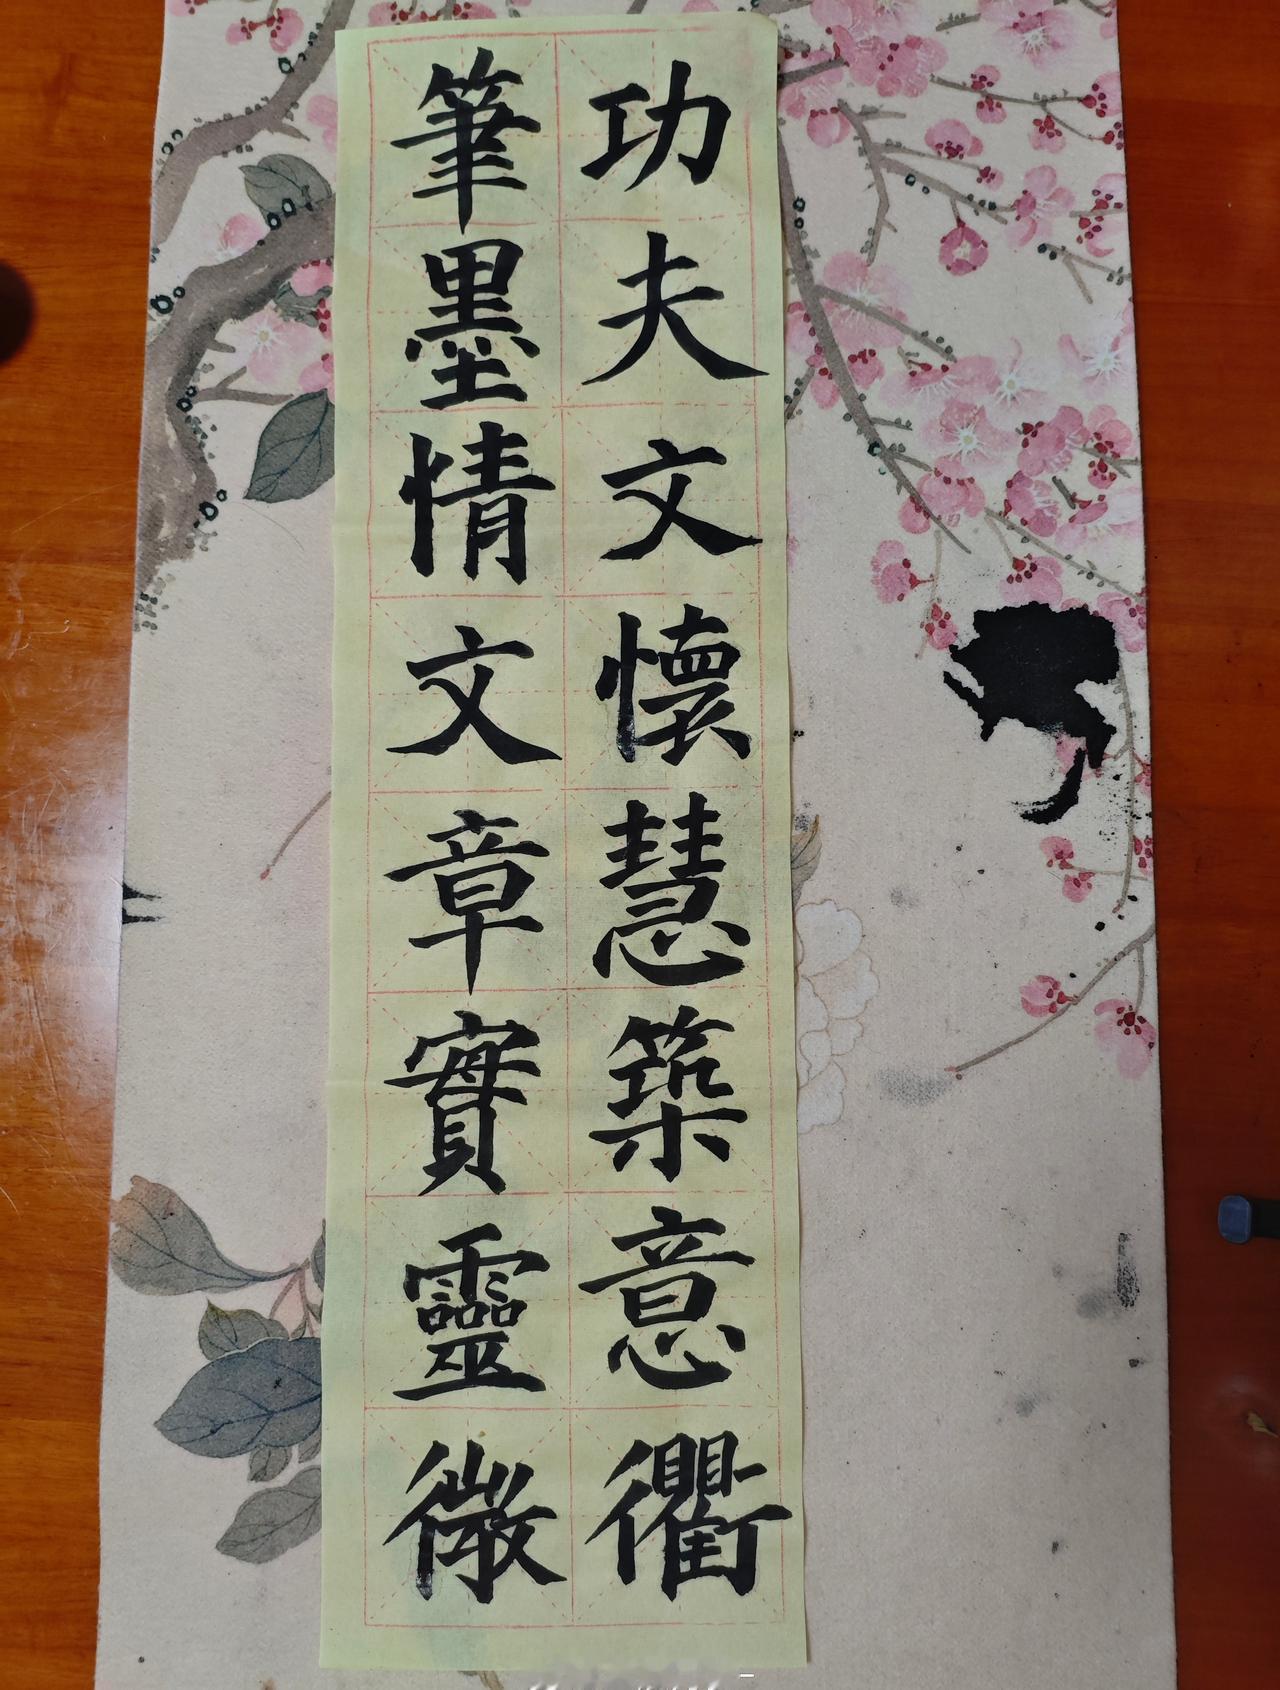 功夫文懷慧築意衢
筆墨情文章實靈徵